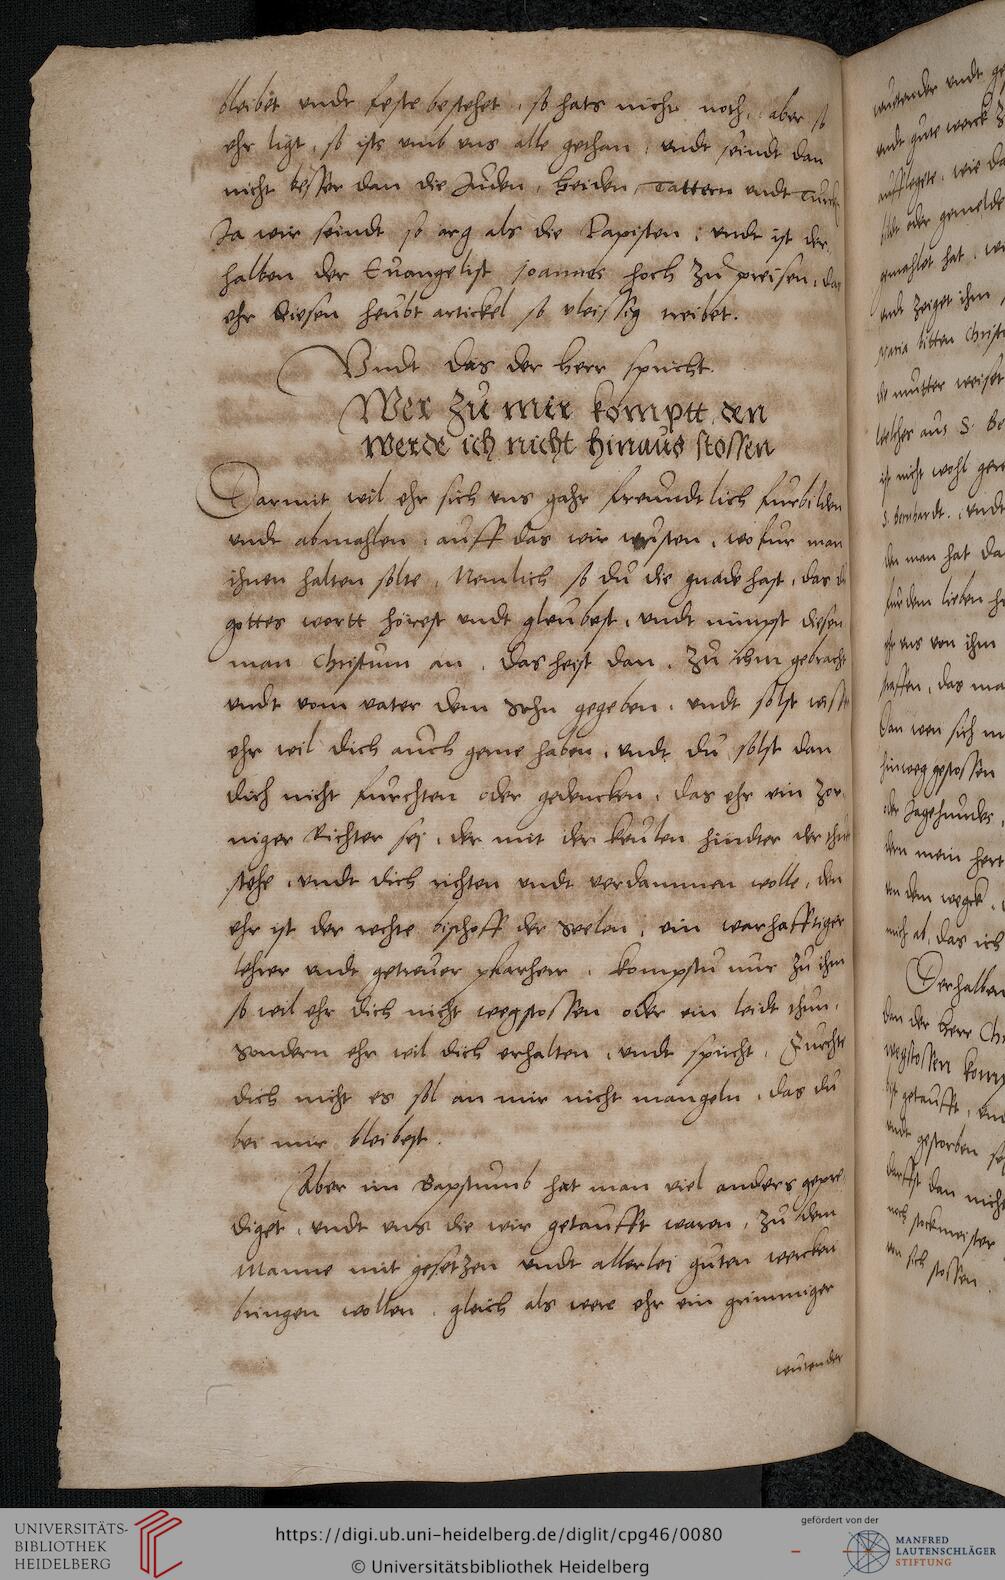 bleibet undt feste bestehet, so hats nicht noth, aber so
ehr ligt, so ists umb uns alle gethan, undt seindt dan
nicht besser dan die Juden, Heiden, Tattern undt Turck
Ja wir seindt so arg als die Papisten, undt ist der
halben der Euangelist Joannes hoch zu preisen, das
ehr diesen heubt artickel so vleissig treibet.
Undt das der Herr spricht.
Wer zu mir komptt den
werde ich nicht hinaus stossen
Darmit wil ehr sich uns gahr freundtlich furbilden
undt abmahlen, auff das wir wusten, wofur man
ihnen halten solte, Nemlich so du die gnade hast, das du
gottes wortt hörest undt gleubest, undt nimpst diesen
man Christum an, das heist dan, zu ihm gebracht
undt vom vater dem Sohn gegeben, undt solst wissen
ehr wil dich auch gerne haben, undt du solst dan
dich nicht furchten oder gedencken, das ehr ein zor
niger Richter sej, der mit der keulen hindter der thur
stehe, undt dich richten undt verdammen wolle, den
ehr ist der rechte bischoff der Seelen, ein warhafftiger
lehrer undt getreuer pfarherr, kompstu nur zu ihm
so wil ehr dich nicht wegstossen oder ein leidt thun,
Sondern ehr wil dich erhalten, undt spricht, Furchte
dich nicht es sol an mir nicht mangeln, das du
bei mir bleibest.
Aber im Bapstumb hat man viel anders gepre
diget, undt uns die wir getaufft waren, zu dem
Manne mit gesetzen undt allerlei guten wercken
bringen wollen, gleich als were ehr ein grimmiger
wutender
wutender undt
undt gute werck
aufflegete, wie da
bildt oder gemelde
gemahlet hat, wi
undt zeiget ihm
Maria bitten Christ
die mutter weiset
welcher aus S. Be
ist nicht wohl gere
S. Bernhardt, undt
den man hat da
fur dem lieben he
ehr uns von ihm
stossen, das ma
Dan wen sich m
hinweg gestossen
oder Jagehunde,
dem mein hert
von dem wegk,
mich ab, das ich
Derhalben
dan der Herr Chr
wegstossen kom
bist getaufft, un
undt gestorben
darffst dan nicht
noch stockmeister
von sich stossen
UNIVERSITÄTS-
BIBLIOTHEK
HEIDELBERG
https://digi.ub.uni-heidelberg.de/diglit/cpg46/0080
© Universitätsbibliothek Heidelberg
gefördert von der
MANFRED
LAUTENSCHLÄGER
STIFTUNG